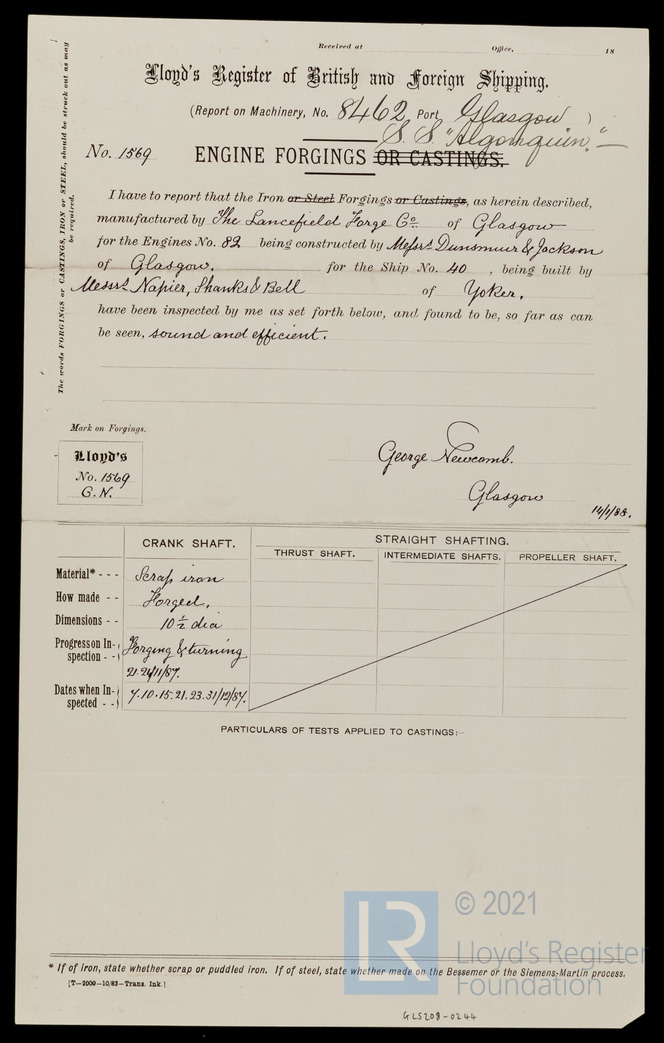 Received at Office, 18
Lloyd's Register of British and Foreign Shipping.
(Report on Machinery, No. 8462 Port Glasgow )
S.S. "Algonquin."
No. 1569 ENGINE FORGINGS OR CASTINGS.
I have to report that the Iron or Steel Forgings or Castings, as herein described,
manufactured by The Lancefield Forge Co. of Glasgow
for the Engines No. 82 being constructed by Messrs. Dunsmuir & Jackson
of Glasgow, for the Ship No. 40 , being built by
Messrs. Napier, Shanks & Bell of Yoker,
have been inspected by me as set forth below, and found to be, so far as can
be seen, sound and efficient.
The words FORGINGS or CASTINGS, IRON or STEEL, should be struck out as may
be required.
Mark on Forgings.
Lloyd's
No. 1569
G.N.
George Newcomb.
Glasgow
14/1/88.
CRANK SHAFT. STRAIGHT SHAFTING.
THRUST SHAFT. INTERMEDIATE SHAFTS. PROPELLER SHAFT.
Material* - - - Scrap iron
How made - - Forged,
Dimensions - - 10 1/2 dia
Progress on In-
spection - - Forging & turning
21.24/11/87.
Dates when In-
spected - - 7.10.15.21.23.31/12/87.
PARTICULARS OF TESTS APPLIED TO CASTINGS:-
© 2021
LR
Lloyd's Register
Foundation
* If of iron, state whether scrap or puddled iron. If of steel, state whether made on the Bessemer or the Siemens-Martin process.
[T—2000—10/83—Trans. Ink.]
GLS208-0244